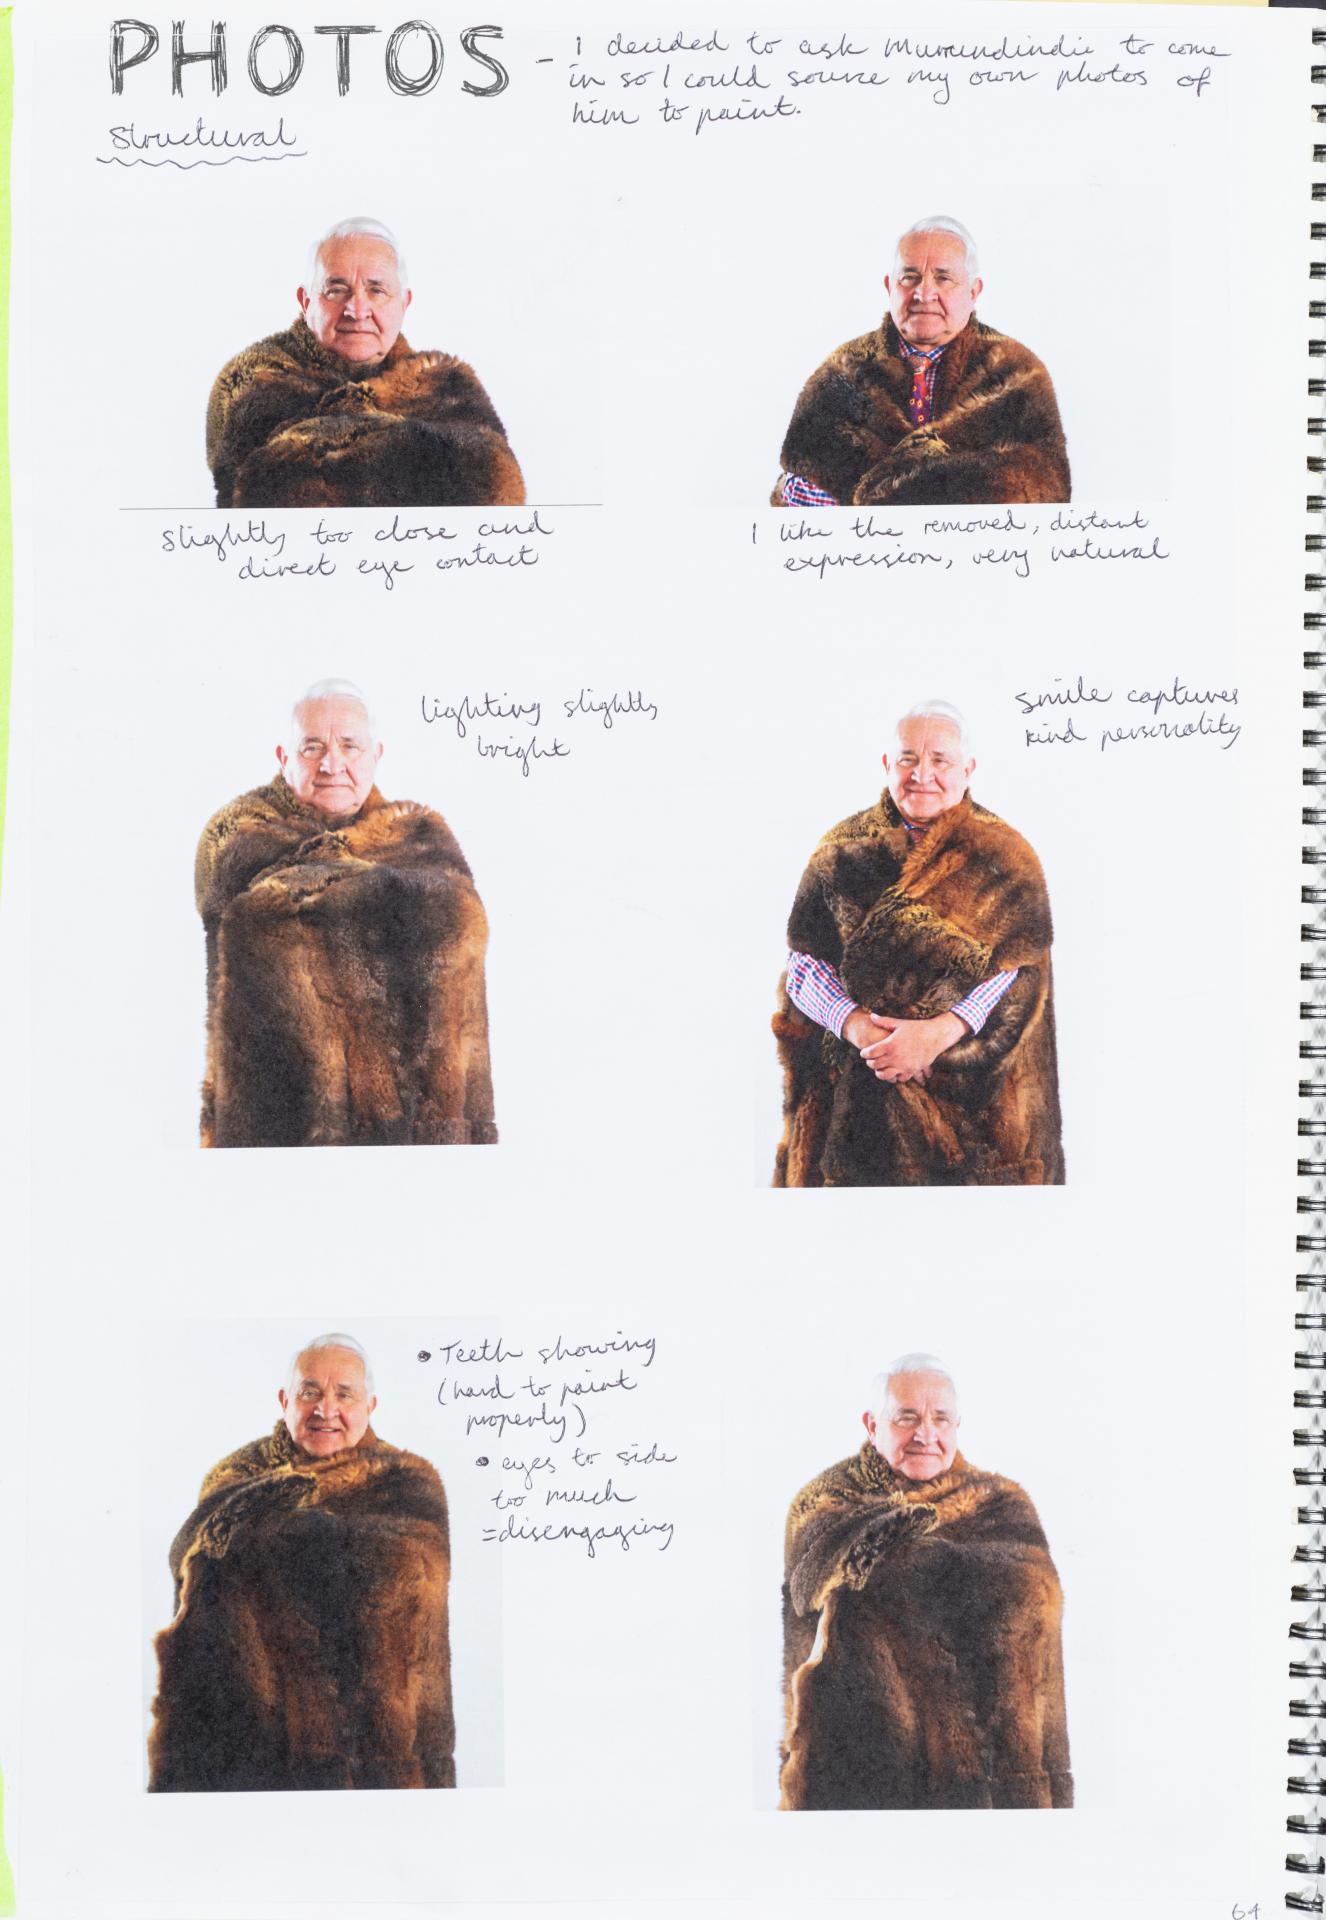 PHOTOS - I decided to ask Murrundindii to come
in so I could source my own photos of
him to paint.
Structural
slightly too close and
direct eye contact
I like the removed, distant
expression, very natural
lighting slightly
bright
smile captures
kind personality
• Teeth showing
(hard to paint
properly)
• eyes to side
too much
=disengaging
64